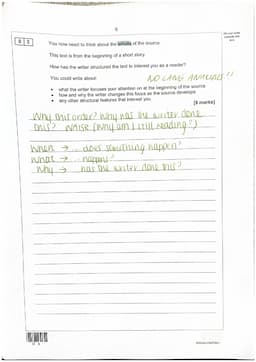 6
Do not write
outside the
box
0 3
You now need to think about the whole of the source.
This text is from the beginning of a short story.
How has the writer structured the text to interest you as a reader?
You could write about:
NO LANG ANALYSIS!!
• what the writer focuses your attention on at the beginning of the source
• how and why the writer changes this focus as the source develops
• any other structural features that interest you.
[8 marks]
Why this order? Why has the writer done
this? Whise (Why am I still reading?)
When → does something happen?
What → happens?
Why → has the writer done this?